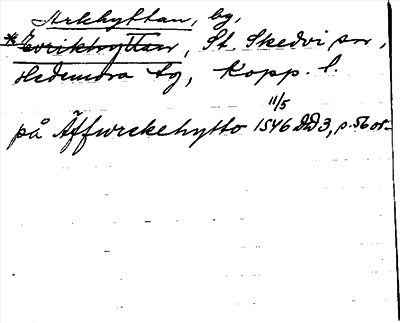 Arkhyttan, by,
* Evrikhyttan, St. Skedvi sn,
Hedemora tg, Kopp. l.
11/5
på Äffwrekehytto 1546 DD3, s. 56 or.